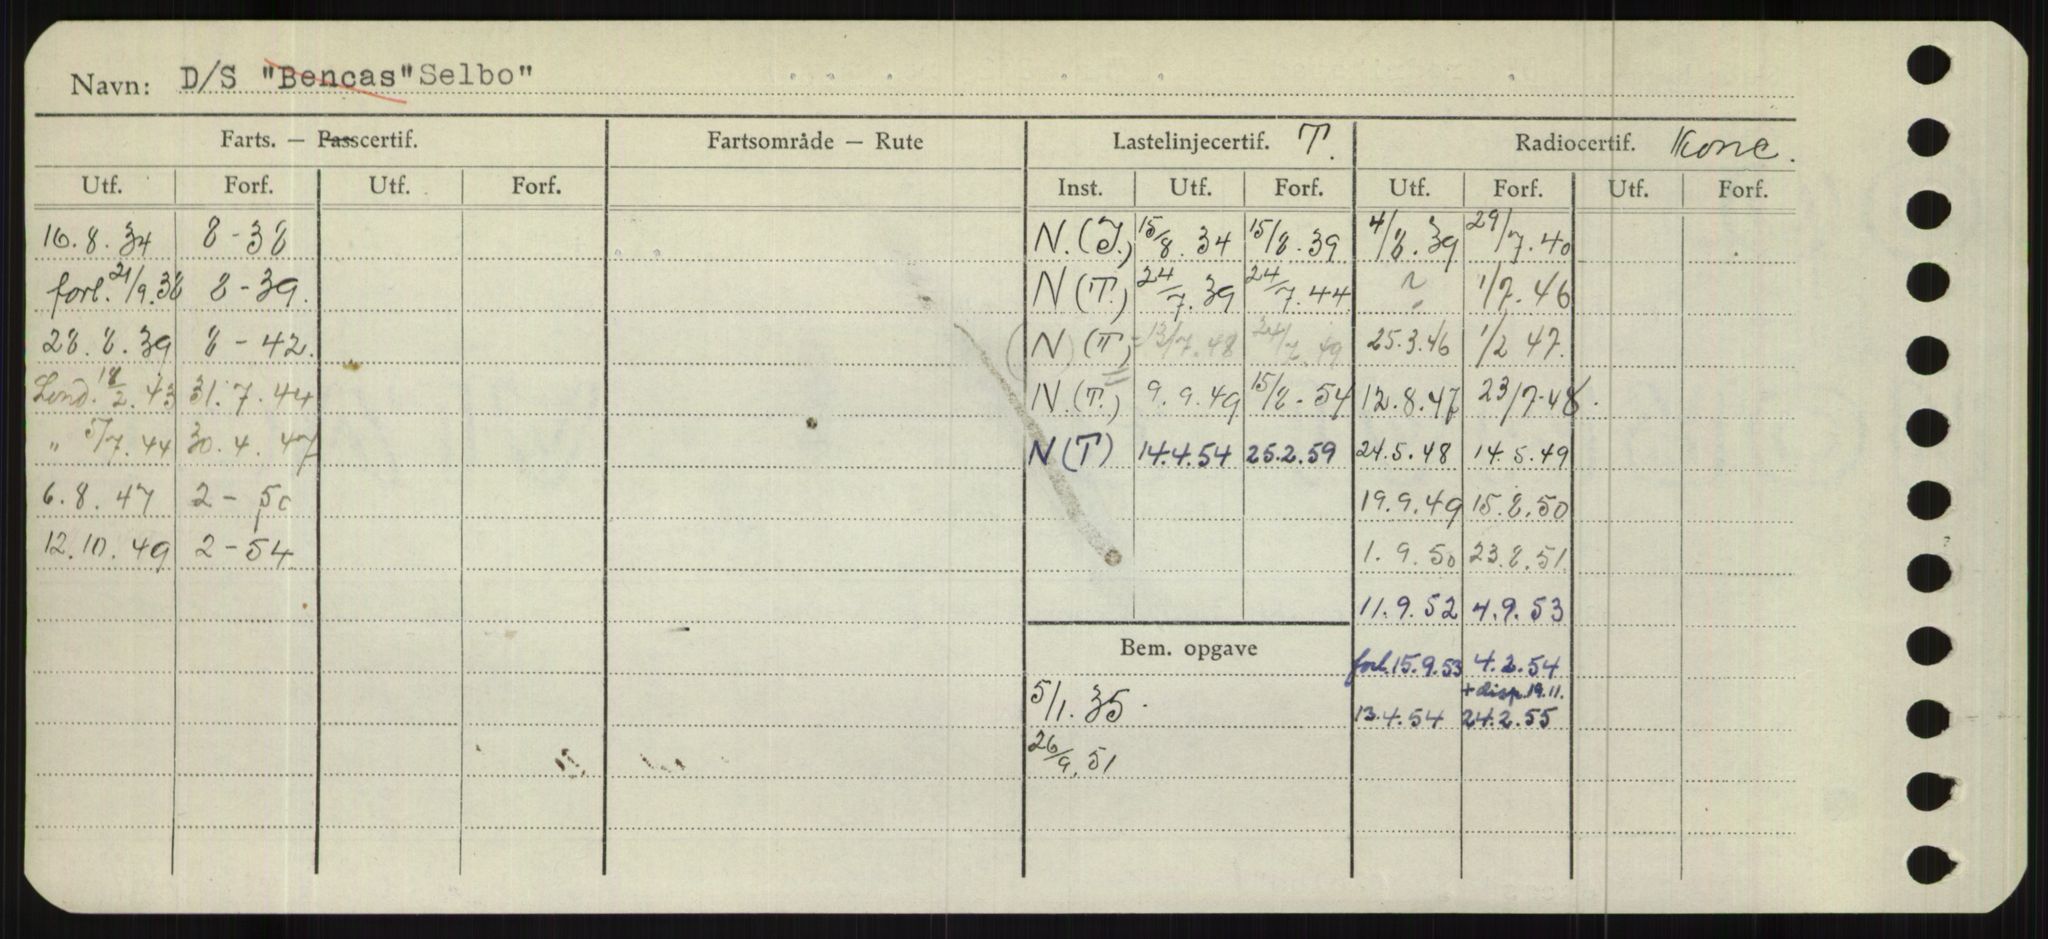 Navn: D/S "Bencas" Selbo"
Farts. — Passcertif. Fartsområde — Rute Lastelinjecertif. T. Radiocertif. Konc.
Utf. Forf. Utf. Forf. Inst. Utf. Forf. Utf. Forf. Utf. Forf.
16.8.34 8-38 N.(T.) 15/8.34 15/8.39 4/8.39 29/7.40
forl. 21/9.38 8-39. N(T.) 24/7.39 24/7.44 ? 1/2.46
28.8.39 8-42. (N)(T) 24/7.49 25.3.46 1/2 47.
Lond. 18/2.43 31.7.44 N.(T.) 9.9.49 15/8.54 12.8.47 23/7.48.
" 5/7.44 30.4.47 N(T) 14.4.54 25.2.59 24.5.48 14.5.49
6.8.47 2-50 19.9.49 15.8.50
12.10.49 2-54 1.9.50 23.8.51
11.9.52 4.9.53
Bem. opgave forl. 15.9.53 4.2.54
+ disp. 19.11.
5/1.35. 13.4.54 24.2.55
26/9.51